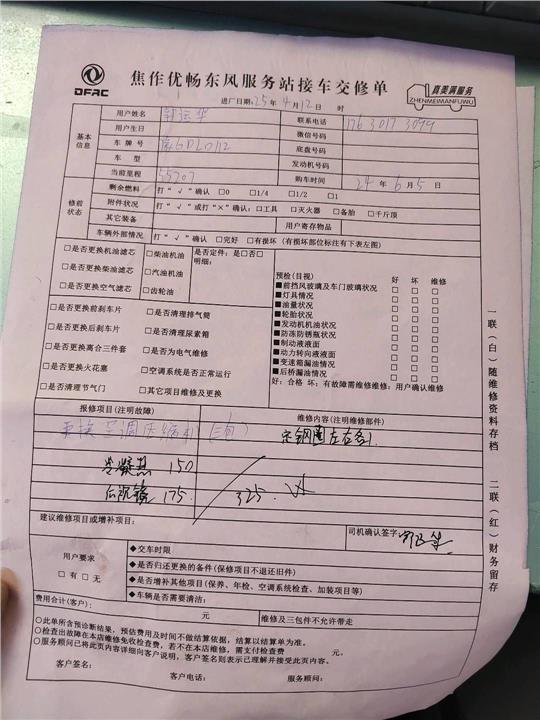 DFAC
焦作优畅东风服务站接车交修单
真美满服务
ZHENMEIMANFUWU
进厂日期:25年4月12日 时
基本信息
用户姓名
联系电话 176 3017 3099
用户生日
微信号码
车牌号
底盘号码
车型
发动机号码
当前里程 55707
购车时间 24年6月5日
修前状态
剩余燃料 打"√"确认 □0 □1/4 □1/2 □1
附件状况 打"√"或打"×"确认:□工具 □灭火器 □备胎 □千斤顶
其它装备
用户寄存物品
车辆外部情况 打"√"确认 □完好 □有损坏(有损坏部位标注有下表左图)
□是否更换机油滤芯
□是否更换柴油滤芯
□是否更换空气滤芯
□柴油机油
□汽油机油
□齿轮油
是否定件:是□否□
明细:
□是否更换前刹车片
□是否更换后刹车片
□是否更换离合三件套
□是否更换火花塞
□是否清理节气门
□是否清理排气筒
□是否清理尿素箱
□是否为电气维修
□空调系统是否正常运行
□其它项目维修及更换
预检(目视) 好 坏 维修
■前挡风玻璃及车门玻璃状况 □ □ □
■灯具情况 □ □ □
■油量状况 □ □ □
■轮胎状况 □ □ □
■发动机机油状况 □ □ □
■防冻防锈瓶状况 □ □ □
■制动液液面 □ □ □
■动力转向液液面 □ □ □
■变速箱漏油情况 □ □ □
■后桥漏油情况 □ □ □
好:合格 坏:有故障需维修维修:用户确认维修
报修项目(注明故障)
维修内容(注明维修部件)
更换空调压缩机
钢圈左右各1
冷凝器 150
后视镜 175
325.
建议维修项目或增补项目:
司机确认签字:
用户要求
□有□无
◆交车时限
◆是否归还更换的备件(保修项目不退还旧件)
◆是否增补其他项目(保养、年检、空调系统检查、加装项目等)
◆车辆是否需要清洁:
费用合计(客户): 元
维修及三包件不允许带走
○此单所含预诊断结果,预估费用及时间不做结算依据,结算以结算单为准。
○检查出故障在本店维修免收检查费,若不在本店维修,需支付检查费 元。
○服务顾问已将此页内容详细向客户说明,客户签名则表示已理解并接受此页内容。
客户签名:
客户电话:
服务顾问:
一联(白)随维修资料存档
二联(红)财务留存